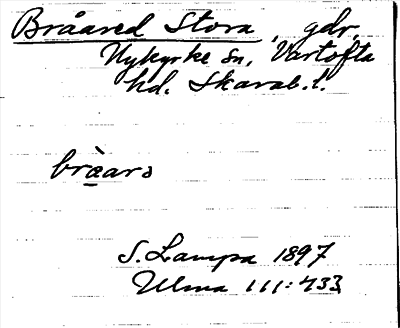 Bråared Stora, gdr,
Nykyrke sn, Vartofta
hd. Skarab. l.
bràarə
S. Lampa 1897
Ulma 111:433